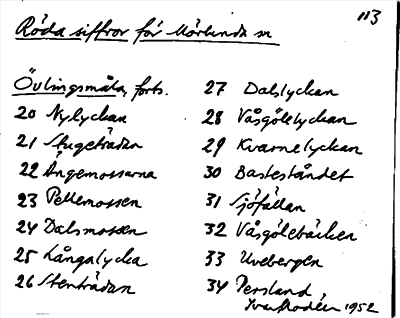 113
Röda siffror för Mörlunda sn
Övlingsmåla, forts.
20 Nylyckan
21 Stugeträdan
22 Ängemossarna
23 Pellemossen
24 Dalsmossen
25 Långalycka
26 Stenträdan
27 Dalslyckan
28 Vasgölelyckan
29 Kvarnelyckan
30 Basteståndet
31 Sjöfällan
32 Vasgölebäcken
33 Uvebergen
34 Persland,
1952